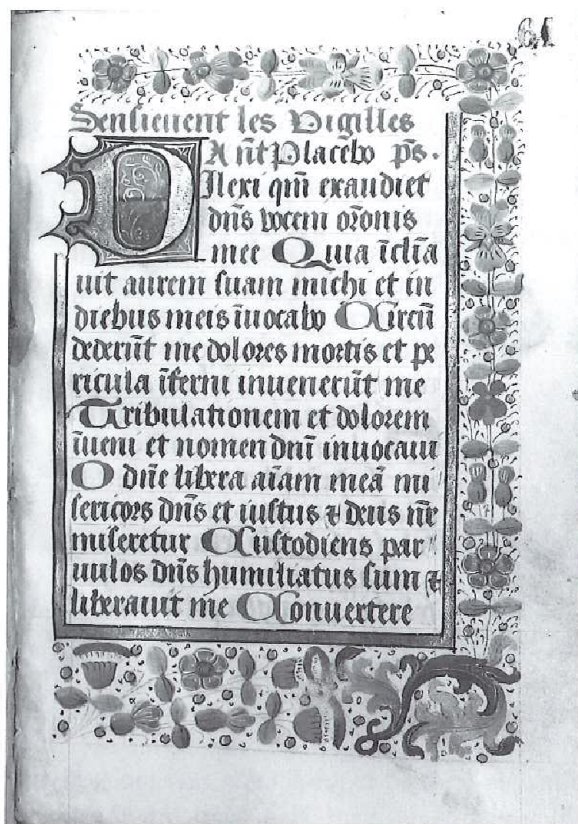 61
Sensieuent les Vigilles
Añt Placebo ps̄.
Dilexi qm̄ exaudiet
dn̄s vocem or̄onis
mee Quia īclīa
uit aurem suam michi et in
diebus meis īuocabo Circū
dederūt me dolores mortis et pe
ricula īferni inuenerūt me
Tribulationem et dolorem
īueni et nomen dn̄i inuocaui
O dn̄e libera aīam meā mi
sericors dn̄s et iustus ⁊ deus nr̄
miseretur Custodiens par
uulos dn̄s humiliatus sum ⁊
liberauit me Conuertere